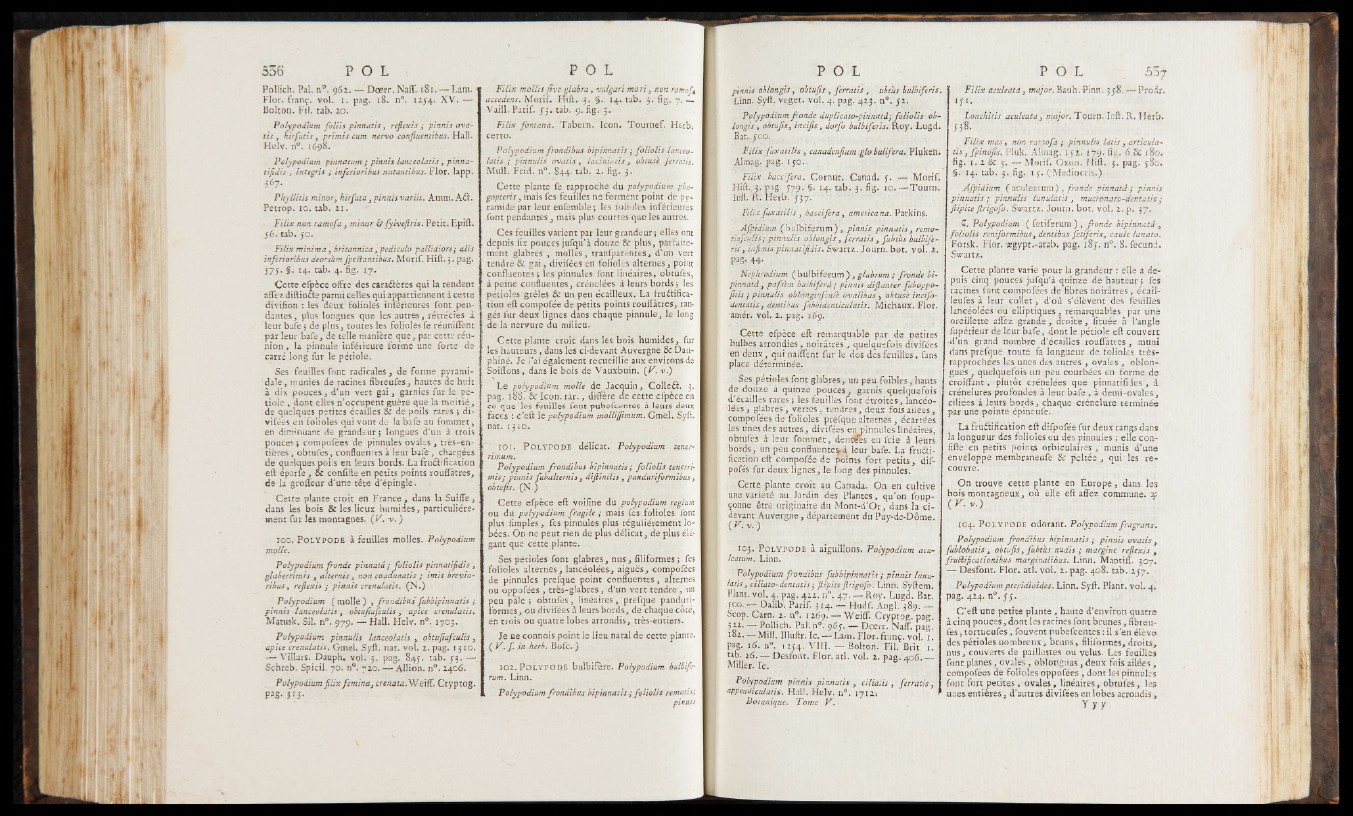 536 P O L
Pollich. Pal. n°. 962. — Dœrr. Naff. 181. — Lam.
Flor. franç. vol. 1. pag. 18. n°. 1254. XV. —
Bolton. Fil. tab. 20.
Polypodium foliis pinnatis, reflexis; pinnis ova-
tis, hirsutis, primis cum nervo confluentibus. Hall.
Helv. n°. 1698.
Polypodium pinnatum; pinnis lanceolatis, pinna-
tifidis, integris; inferioribus nutantibus. Flor. lapp.
367.
Phyllitis minor, hirsuta, pinnis variis. Amm. Act.
Petrop. 10. tab. 21.
Filix non ramosa, minor & sylvestris. Petit. Epist.
56. tab. 50.
Filix minima, britannica, pediculo pallidiore; alis
inferioribus deorsùm spectantibus. Moris. Hist. 3. pag.
575. §. 14. tab. 4. fig. 17.
Cette espèce offre des caractères qui la rendent
assez distincte parmi celles qui appartiennent à cette
division : les deux folioles inférieures sont pen-
dantes, plus longues que les autres, rétrécies à
leur base; de plus, toutes les folioles se réunissent
par leur base, de telle manière que, par cette réu-
nion, la pinnule inférieure forme une sorte de
carré long sur le pétiole.
Ses feuilles sont radicales, de forme pyrami-
dale, munies de racines fibreuses, hautes de huit
à dix pouces, d'un vert gai, garnies sur le pé-
tiole, dont elles n'occupent guère que la moitié,
de quelques petites écailles & de poils rares; di-
visées en folioles qui vont de la base au sommet,
en diminuant de grandeur; longues d'un à trois
pouces; composées de pinnules ovales, très-en-
tières, obtuses, confluentes à leur base, chargées
de quelques poils en leurs bords. La fructification
est éparse, & consiste en petits points roussâtres,
de la grosseur d'une tête d'épingle.
Cette plante croît en France, dans la Suisse,
dans les bois & les lieux humides, particulière-
ment sur les montagnes. (V. v.)
100. POLYPODE à feuilles molles. Polypodium
molle.
Polypodium fronde pinnatâ; foliolis pinnatifidis,
glaberrimis, alternis, non coadunatis; imis brevio-
ribus, reflexis; pinnis crenulatis. (N.)
Polypodium (molle), frondibus subbipinnatis;
pinnis lanceolatis, obtusiusculis, apice crenulatis.
Matusk. Sil. n°. 979. — Hall. Helv. n°. 1703.
Polypodium pinnulis lanceolatis, obtusiusculis,
apice crenulatis. Gmel. Syst. nat. vol. 2. pag. 1310.
— Villars. Dauph. vol. 3. pag. 845. tab. 53. —
Schreb. Spicil. 70. n°. 720. — Allion. n°. 2406.
Polypodium filix femina, crenata. Weiss. Cryptog.
pag. 313.
P O L
Filix mollis sive glabra, vulgari mari, non ramosæ
accedens. Moris. Hist. 3. §. 14. tab. 3. fig. 7. —
Vaill. Paris. 53. tab. 9. fig. 3.
Filix fontana. Tabern. Icon. Tournef. Herb.
certo.
Polypodium frondibus bipinnatis; foliolis lanceo-
latis; pinnulis ovatis, laciniatis, obtusè serratis.
Mull. Frid. n°. 844. tab. 2. fig. 3.
Cette plante se rapproche du polypodium phe-
gopteris, mais ses feuilles ne forment point de py-
ramide par leur ensemble; les folioles inférieures
sont pendantes, mais plus courtes que les autres.
Ces feuilles varient par leur grandeur; elles ont
depuis six pouces jusqu'à douze & plus, parfaite-
ment glabres, molles, transparentes, d'un vert
tendre & gai, divisées en folioles alternes, point
confluentes; les pinnules sont linéaires, obtuses,
à peine confluentes, crénelées à leurs bords; les
pétioles grêles & un peu écailleux. La fructifica-
tion est composée de petits points roussâtres, ran-
gés sur deux lignes dans chaque pinnule, le long
de la nervure du milieu.
Cette plante croît dans les bois humides, sur
les hauteurs, dans les ci-devant Auvergne & Dau-
phiné. Je l'ai également recueillie aux environs de
Soissons, dans le bois de Vauxbuin. (V. v.)
Le polypodium molle de Jacquin, Collect. 3.
pag. 188. & Icon. rar., diffère de cette espèce en
ce que les feuilles sont pubescentes à leurs deux
faces : c'est le polypodium mollissimum. Gmel. Syst.
nat. 1310.
101. POLYPODE délicat. Polypodium tener-
rimum.
Polypodium frondibus bipinnatis; foliolis tenerri-
mis; pinnis subalternis, distinctis, panduriformibus,
obtusis. (N.)
Cette espèce est voisine du polypodium regium
ou du polypodium fragile; mais ses folioles sont
plus simples, ses pinnules plus régulièrement lo-
bées. On ne peut rien de plus délicat, de plus élé-
gant que cette plante.
Ses pétioles sont glabres, nus, filiformes; ses
folioles alternes, lancéolées, aiguës, composées
de pinnules presque point confluentes, alternes
ou opposées, très-glabres, d'un vert tendre, un
peu pâle; obtuses, linéaires, presque panduri-
formes, ou divisées à leurs bords, de chaque côté,
en trois ou quatre lobes arrondis, très-entiers.
Je ne connois point le lieu natal de cette plante.
(V. s. in herb. Bosc.)
102. POLYPODE bulbifère. Polypodium bulbife-
rum. Linn.
Polypodium frondibus bipinnatis; foliolis remotis;
pinnis
P O L
pinnis oblongis, obtusis, serratis, subtùs bulbiferis.
Linn. Syst. veget. vol. 4. pag. 423. n°. 52.
Polypodium fronde duplicato-pinnatâ; foliolis ob-
longis, obtusis, incisis, dorso bulbiferis. Roy. Lugd.
Bat. 500.
Filix saxatilis, canadensium globulifera. Pluken.
Almag. pag. 150.
Filix baccifera. Cornut. Canad. 5. — Moris.
Hist. 3. pag. 579. §. 14. tab. 3. fig. 10. — Tourn.
Inst. R. Herb. 537.
Filix saxatilis, baccifera, americana. Parkins.
Aspidium (bulbiferum), pinnis pinnatis, remo-
tiusculis; pinnulis oblongis, serratis, subtùs bulbife-
ris, infimis pinnatifidis. Swartz. Journ. bot. vol. 2.
pag. 44.
Nephrodium (bulbiferum), glabrum; fronde bi-
pinnatâ, passim bulbiferâ; pinnis distanter suboppo-
sitis; pinnulis oblongiusculè ovalibus, obtusè inciso-
dentatis, dentibus subdenticulatis. Michaux. Flor.
amér. vol. 2. pag. 269.
Cette espèce est remarquable par de petites
bulbes arrondies, noirâtres, quelquefois divisées
en deux, qui naissent sur le dos des feuilles, sans
place déterminée.
Ses pétioles sont glabres, un peu foibles, hauts
de douze à quinze pouces, garnis quelquefois
d'écailles rares; les feuilles sont étroites, lancéo-
lées, glabres, vertes, tendres, deux fois ailées,
composées de folioles presque alternes, écartées
les unes des autres, divisées en pinnules linéaires,
obtuses à leur sommet, dentées en scie à leurs
bords, un peu confluentes à leur base. La fructi-
fication est composée de points fort petits, dis-
posés sur deux lignes, le long des pinnules.
Cette plante croît au Canada. On en cultive
une variété au Jardin des Plantes, qu'on soup-
çonne être originaire du Mont-d'Or, dans la ci-
devant Auvergne, département du Puy-de-Dôme.
(V. v.)
103. POLYPODE à aiguillons. Polypodium acu-
leatum. Linn.
Polypodium frondibus subbipinnatis; pinnis lunu-
latis, ciliato-dentatis; stipite strigoso. Linn. System.
Plant. vol. 4. pag. 422. n°. 47. — Roy. Lugd. Bat.
500. — Dalib. Paris. 314. — Huds. Angl. 389. —
Scop. Carn. 2. n°. 1269. — Weiss. Cryptog. pag.
322. — Pollich. Pal. n°. 965. — Dœrr. Naff. pag.
182. — Mill. Illustr. Ic. — Lam. Flor. franç. vol. 1.
pag. 16. n°. 1254. VIII. — Bolton. Fil. Brit. 1.
tab. 26. — Desfont. Flor. atl. vol. 2. pag. 406. —
Miller. Ic.
Polypodium pinnis pinnatis, ciliatis, serratis,
appendiculatis. Hall. Helv. n°. 1712.
Botanique. Tome V.
P O L 537
Filix aculeata, major. Bauh. Pinn. 358. — Prodr.
151.
Lonchitis aculeata, major. Tourn. Inst. R. Herb.
538.
Filix mas, non ramosa; pinnulis latis, articula-
tis, spinosis. Pluk. Almag. 152. 179. fig. 6 & 180.
fig. 1. 2 & 3. — Moris. Oxon. Hist. 3. pag. 580.
§. 14. tab. 3. fig. 15. (Mediocris.)
Aspidium (aculeatum), fronde pinnatâ; pinnis
pinnatis; pinnulis lunulatis, mucronato-dentatis;
stipite strigoso. Swartz. Journ. bot. vol. 2. p. 37.
Polypodium (setiferum), fronde bipinnatâ,
foliolis reniformibus, dentibus setiferis, caule lanato.
Forsk. Flor. ægypt.-arab. pag. 185. n°. 8. secund.
Swartz.
Cette plante varie pour la grandeur : elle a de-
puis cinq pouces jusqu'à quinze de hauteur; ses
racines sont composées de fibres noirâtres, écail-
leuses à leur collet, d'où s'élèvent des feuilles
lancéolées ou elliptiques, remarquables par une
oreillette assez grande, droite, située à l'angle
supérieur de leur base, dont le pétiole est couvert
d'un grand nombre d'écailles roussâtres, muni
dans presque toute sa longueur de folioles très-
rapprochées les unes des autres, ovales, oblon-
gues, quelquefois un peu courbées en forme de
croissant, plutôt crénelées que pinnatifides, à
crénelures profondes à leur base, à demi-ovales,
ciliées à leurs bords, chaque crénelure terminée
par une pointe épineuse.
La fructification est disposée sur deux rangs dans
la longueur des folioles ou des pinnules : elle con-
siste en petits points orbiculaires, munis d'une
enveloppe membraneuse & peltée, qui les re-
couvre.
On trouve cette plante en Europe, dans les
bois montagneux, où elle est assez commune. ♃
(V. v.)
104. POLYPODE odorant. Polypodium fragrans.
Polypodium frondibus bipinnatis; pinnis ovatis,
sublobatis, obtusis, subtùs nudis; margine reflexis,
fructificationibus marginalibus. Linn. Mantiss. 307.
— Desfont. Flor. atl. vol. 2. pag. 408. tab. 257.
Polypodium pteridioides. Linn. Syst. Plant. vol. 4.
pag. 424. n°. 55.
C'est une petite plante, haute d'environ quatre
à cinq pouces, dont les racines sont brunes, fibreu-
ses, tortueuses, souvent pubescentes : il s'en élève
des pétioles nombreux, bruns, filiformes, droits,
nus, couverts de paillettes ou velus. Les feuilles
sont planes, ovales, oblongues, deux fois ailées,
composées de folioles opposées, dont les pinnules
sont fort petites, ovales, linéaires, obtuses, les
unes entières, d'autres divisées en lobes arrondis,
Y y y